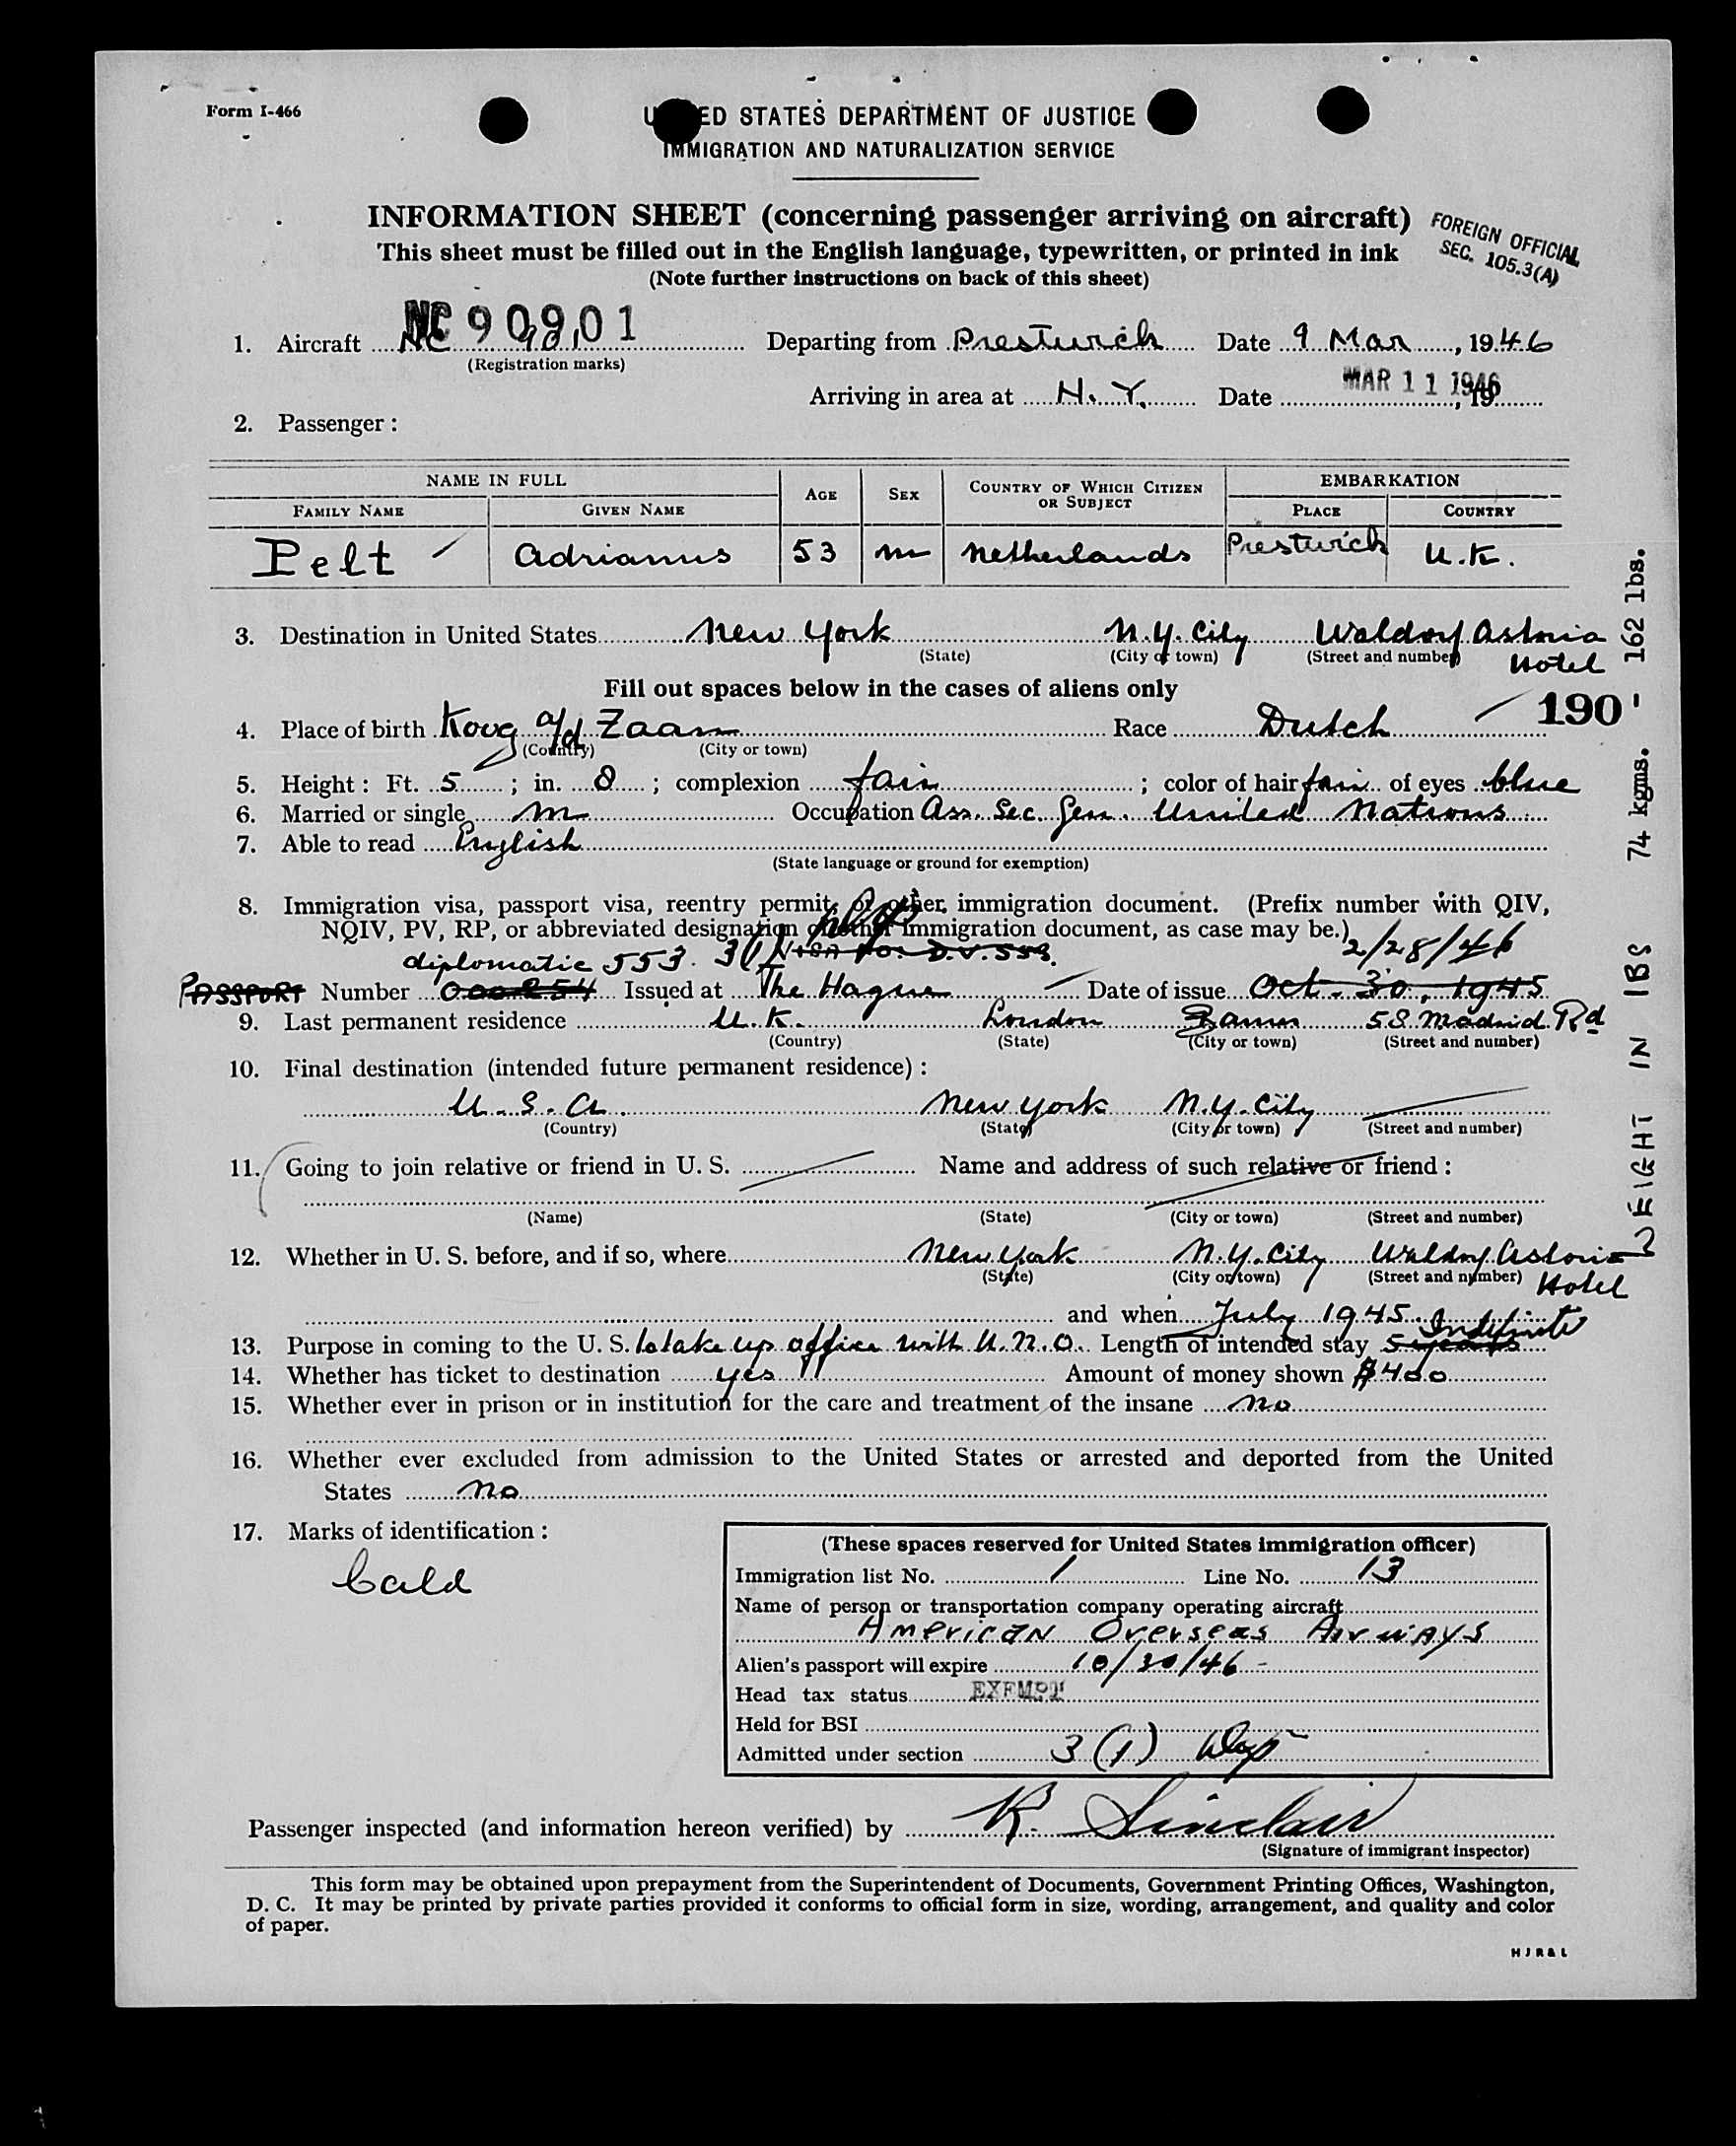 Form I-466
UNITED STATES DEPARTMENT OF JUSTICE
IMMIGRATION AND NATURALIZATION SERVICE
INFORMATION SHEET (concerning passenger arriving on aircraft)
This sheet must be filled out in the English language, typewritten, or printed in ink
(Note further instructions on back of this sheet)
FOREIGN OFFICIAL
SEC. 105.3(A)
1. Aircraft NC 90901 Departing from Prestwick Date 9 Mar, 1946
(Registration marks)
Arriving in area at N.Y. Date MAR 11 1946, 19
2. Passenger:
NAME IN FULL AGE SEX COUNTRY OF WHICH CITIZEN OR SUBJECT EMBARKATION
FAMILY NAME GIVEN NAME PLACE COUNTRY
Pelt Adrianus 53 m Netherlands Prestwick U.K.
3. Destination in United States New York N.Y. City Waldorf Astoria Hotel
(State) (City or town) (Street and number)
Fill out spaces below in the cases of aliens only
190
4. Place of birth Koog a/d Zaan Race Dutch
(Country) (City or town)
5. Height: Ft. 5; in. 8; complexion fair; color of hair fair of eyes blue
6. Married or single m Occupation Ass. Sec. Gen. United Nations
7. Able to read English
(State language or ground for exemption)
8. Immigration visa, passport visa, reentry permit, or other immigration document. (Prefix number with QIV,
NQIV, PV, RP, or abbreviated designation of other immigration document, as case may be.)
diplomatic 553. 3(1) VISA No. D.V. 553. 2/28/46
PASSPORT Number 000254 Issued at The Hague Date of issue Oct. 30, 1945
9. Last permanent residence U.K. London Barnes 58 Madrid Rd
(Country) (State) (City or town) (Street and number)
10. Final destination (intended future permanent residence):
U.S.A. New York N.Y. City
(Country) (State) (City or town) (Street and number)
11. Going to join relative or friend in U. S. Name and address of such relative or friend:
(Name) (State) (City or town) (Street and number)
12. Whether in U. S. before, and if so, where New York N.Y. City Waldorf Astoria Hotel
(State) (City or town) (Street and number)
and when July 1945
13. Purpose in coming to the U. S. to take up office with U.N.O. Length of intended stay 5 years Indefinite
14. Whether has ticket to destination yes Amount of money shown $400
15. Whether ever in prison or in institution for the care and treatment of the insane no
16. Whether ever excluded from admission to the United States or arrested and deported from the United
States no
17. Marks of identification:
bald
(These spaces reserved for United States immigration officer)
Immigration list No. 1 Line No. 13
Name of person or transportation company operating aircraft
American Overseas Airways
Alien's passport will expire 10/30/46 -
Head tax status EXEMPT
Held for BSI
Admitted under section 3 (1)
Passenger inspected (and information hereon verified) by R. Sinclair
(Signature of immigrant inspector)
This form may be obtained upon prepayment from the Superintendent of Documents, Government Printing Offices, Washington,
D. C. It may be printed by private parties provided it conforms to official form in size, wording, arrangement, and quality and color
of paper.
H J R & L
WEIGHT IN lBS 74 kgms. 162 lbs.